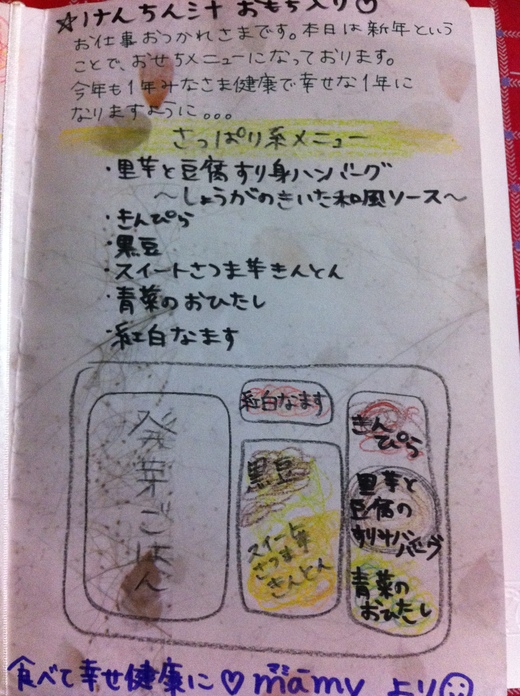 ☆けんちん汁 おもち入り♡
お仕事おつかれさまです。本日は新年という
ことで、おせちメニューになっております。
今年も1年みなさま健康で幸せな1年に
なりますように。。。
さっぱり系メニュー
・里芋と豆腐すり身ハンバーグ
～しょうがのきいた和風ソース～
・きんぴら
・黒豆
・スイートさつま芋きんとん
・青菜のおひたし
・紅白なます
発芽ごはん
紅白なます
黒豆
スイート
さつま芋
きんとん
きん
ぴら
里芋と
豆腐の
すり身ハンバーグ
青菜の
おひたし
食べて幸せ健康に♡mamyより☺